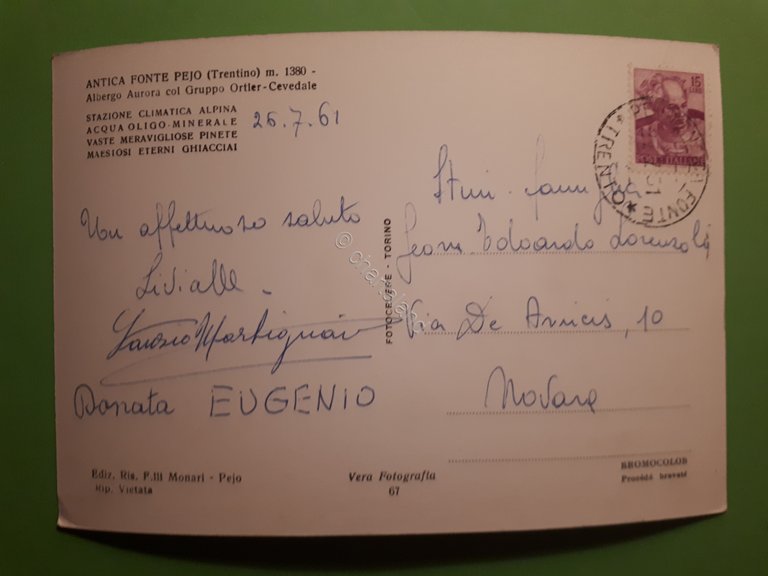 ANTICA FONTE PEJO (Trentino) m. 1380 -
Albergo Aurora col Gruppo Ortler-Cevedale
STAZIONE CLIMATICA ALPINA
ACQUA OLIGO-MINERALE
VASTE MERAVIGLIOSE PINETE
MAESIOSI ETERNI GHIACCIAI
26.7.61
Un affettuoso saluto
Fausto Martignoni
Donata EUGENIO
FOTOCELERE - TORINO
15
LIRE
ITALIANE
FONTE
TRENTO
Geom. Edoardo
Via De Amicis, 10
Novara
Ediz. Ris. F.lli Monari - Pejo
Rip. Vietata
Vera Fotografia
67
BROMOCOLOR
Procédé breveté